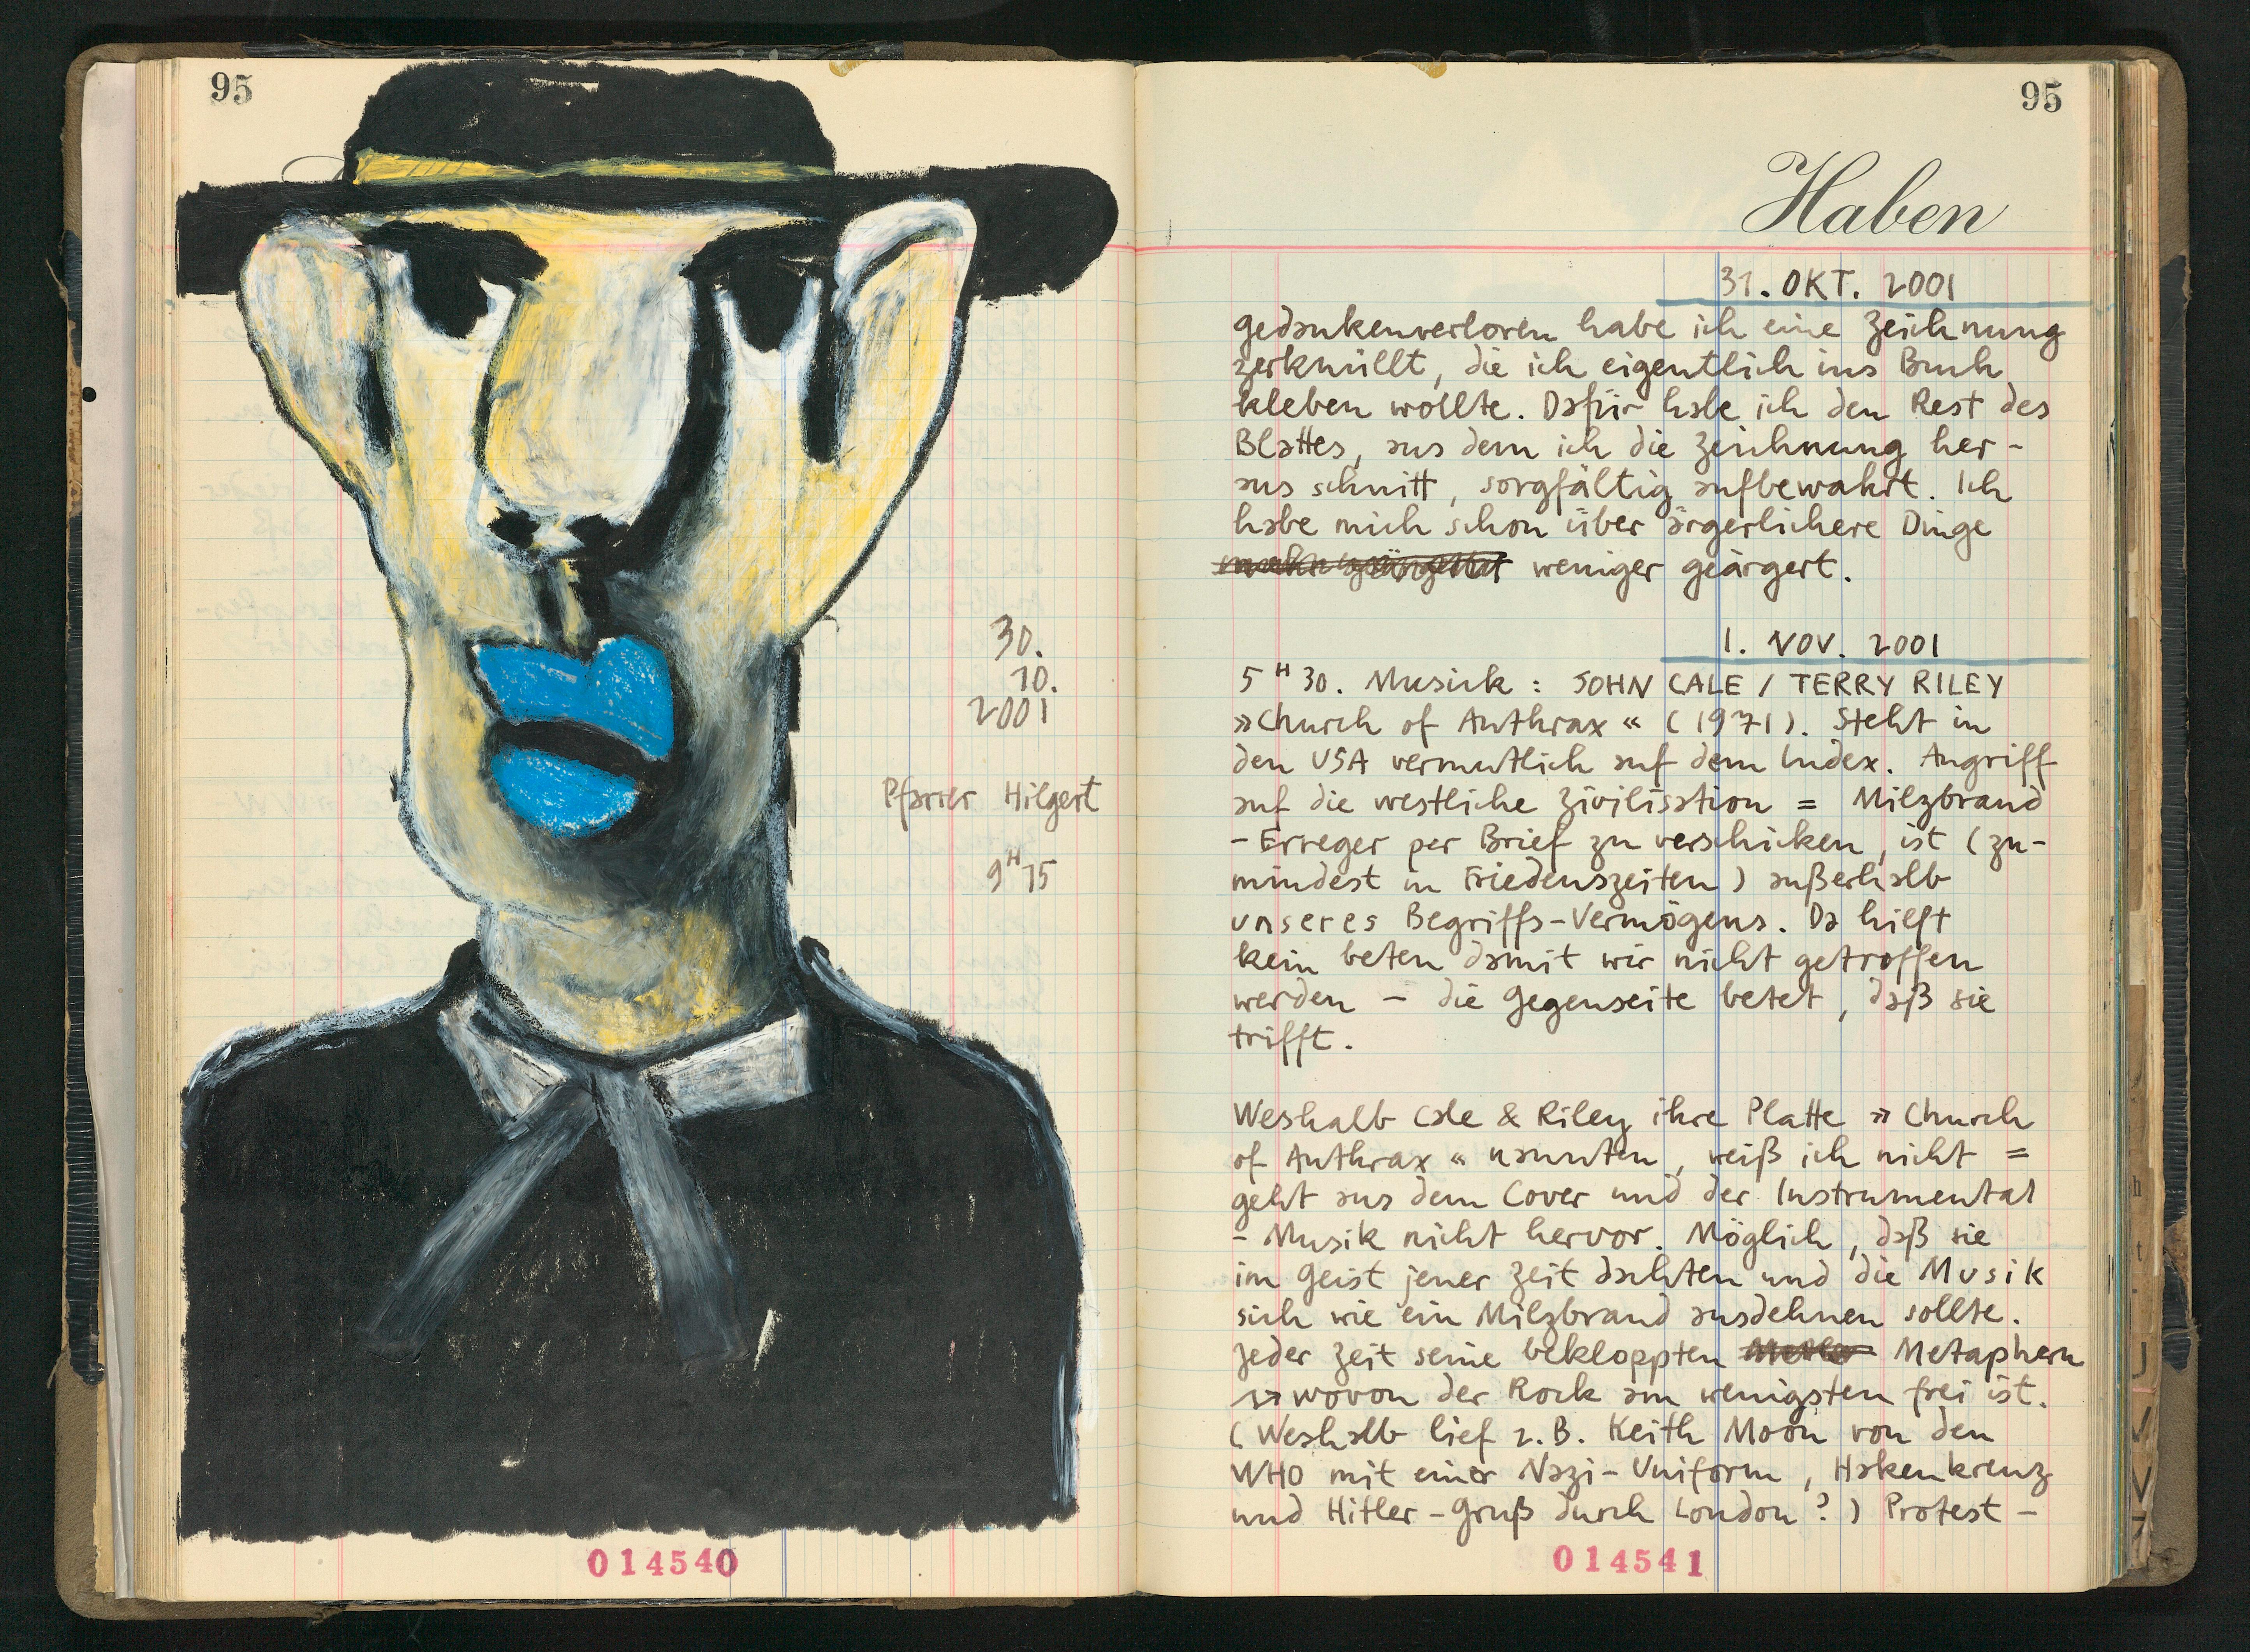 95
30.
10.
2001
Pfarrer Hilgert
9H15
014540
95
Haben
31. OKT. 2001
gedankenverloren habe ich eine Zeichnung
zerknüllt, die ich eigentlich ins Buch
kleben wollte. Dafür habe ich den Rest des
Blattes, aus dem ich die Zeichnung her-
aus schnitt, sorgfältig aufbewahrt. Ich
habe mich schon über ärgerlichere Dinge
weniger geärgert.
1. NOV. 2001
5H30. Musick: JOHN CALE / TERRY RILEY
»Church of Anthrax« (1971). Steht in
den USA vermutlich auf dem Index. Angriff
auf die westliche Zivilisation = Milzbrand
-Erreger per Brief zu verschicken, ist (zu-
mindest in Friedenszeiten) außerhalb
unseres Begriffs-Vermögens. Da hilft
kein beten damit wir nicht getroffen
werden – die Gegenseite betet, daß sie
trifft.
Weshalb Cale & Riley ihre Platte »Church
of Anthrax« nannten, weiß ich nicht =
geht aus dem Cover und der Instrumental
- Musik nicht hervor. Möglich, daß sie
im Geist jener Zeit dachten und die Musik
sich wie ein Milzbrand ausdehnen sollte.
Jeder Zeit seine bekloppten Metaphern
wovon der Rock am wenigsten frei ist.
(Weshalb lief z.B. Keith Moon von den
WHO mit einer Nazi-Uniform, Hakenkreuz
und Hitler-Gruß durch London?) Protest-
014541